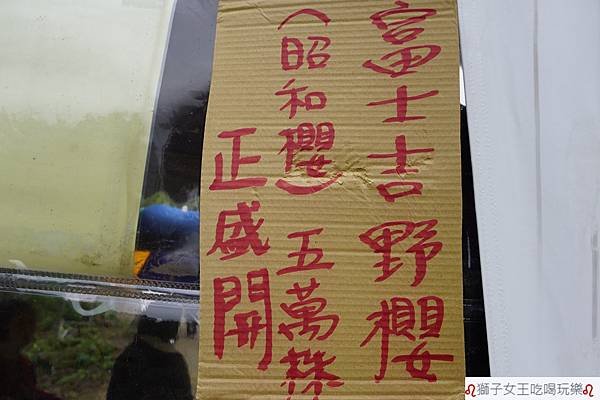 富士吉野櫻
（昭和櫻）五萬株
正盛開
♌獅子女王吃喝玩樂♌